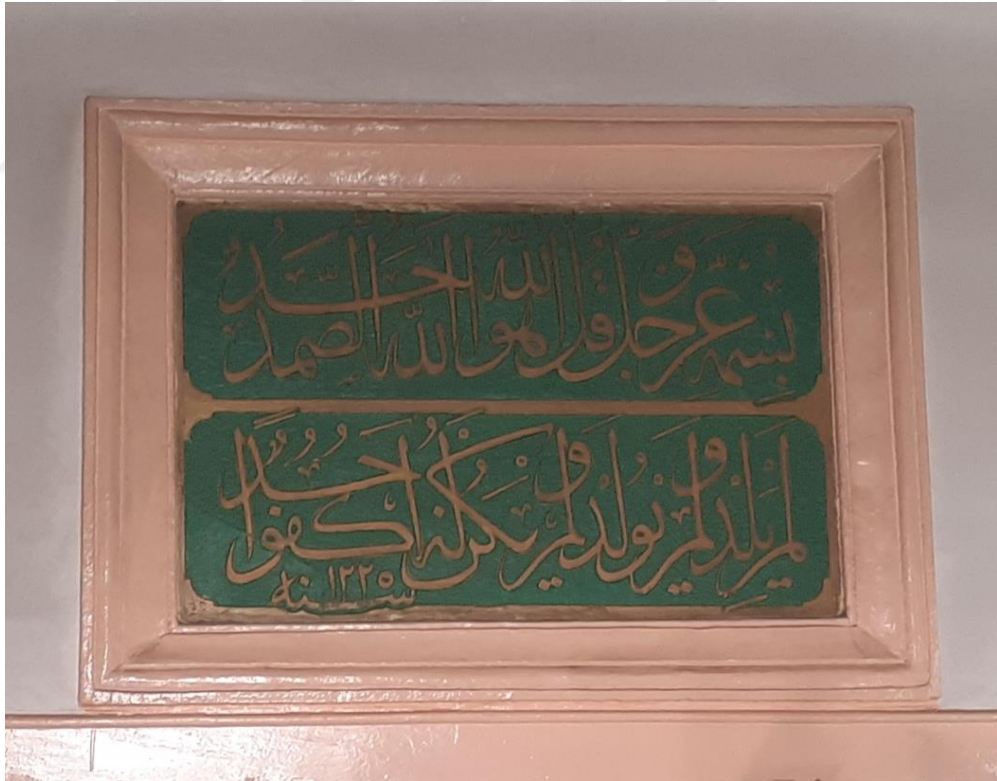 بسمه عز وجل قل هو الله احد الله الصمد
لم يلد ولم يولد ولم يكن له كفوا احد
سنه ١٢٢٥